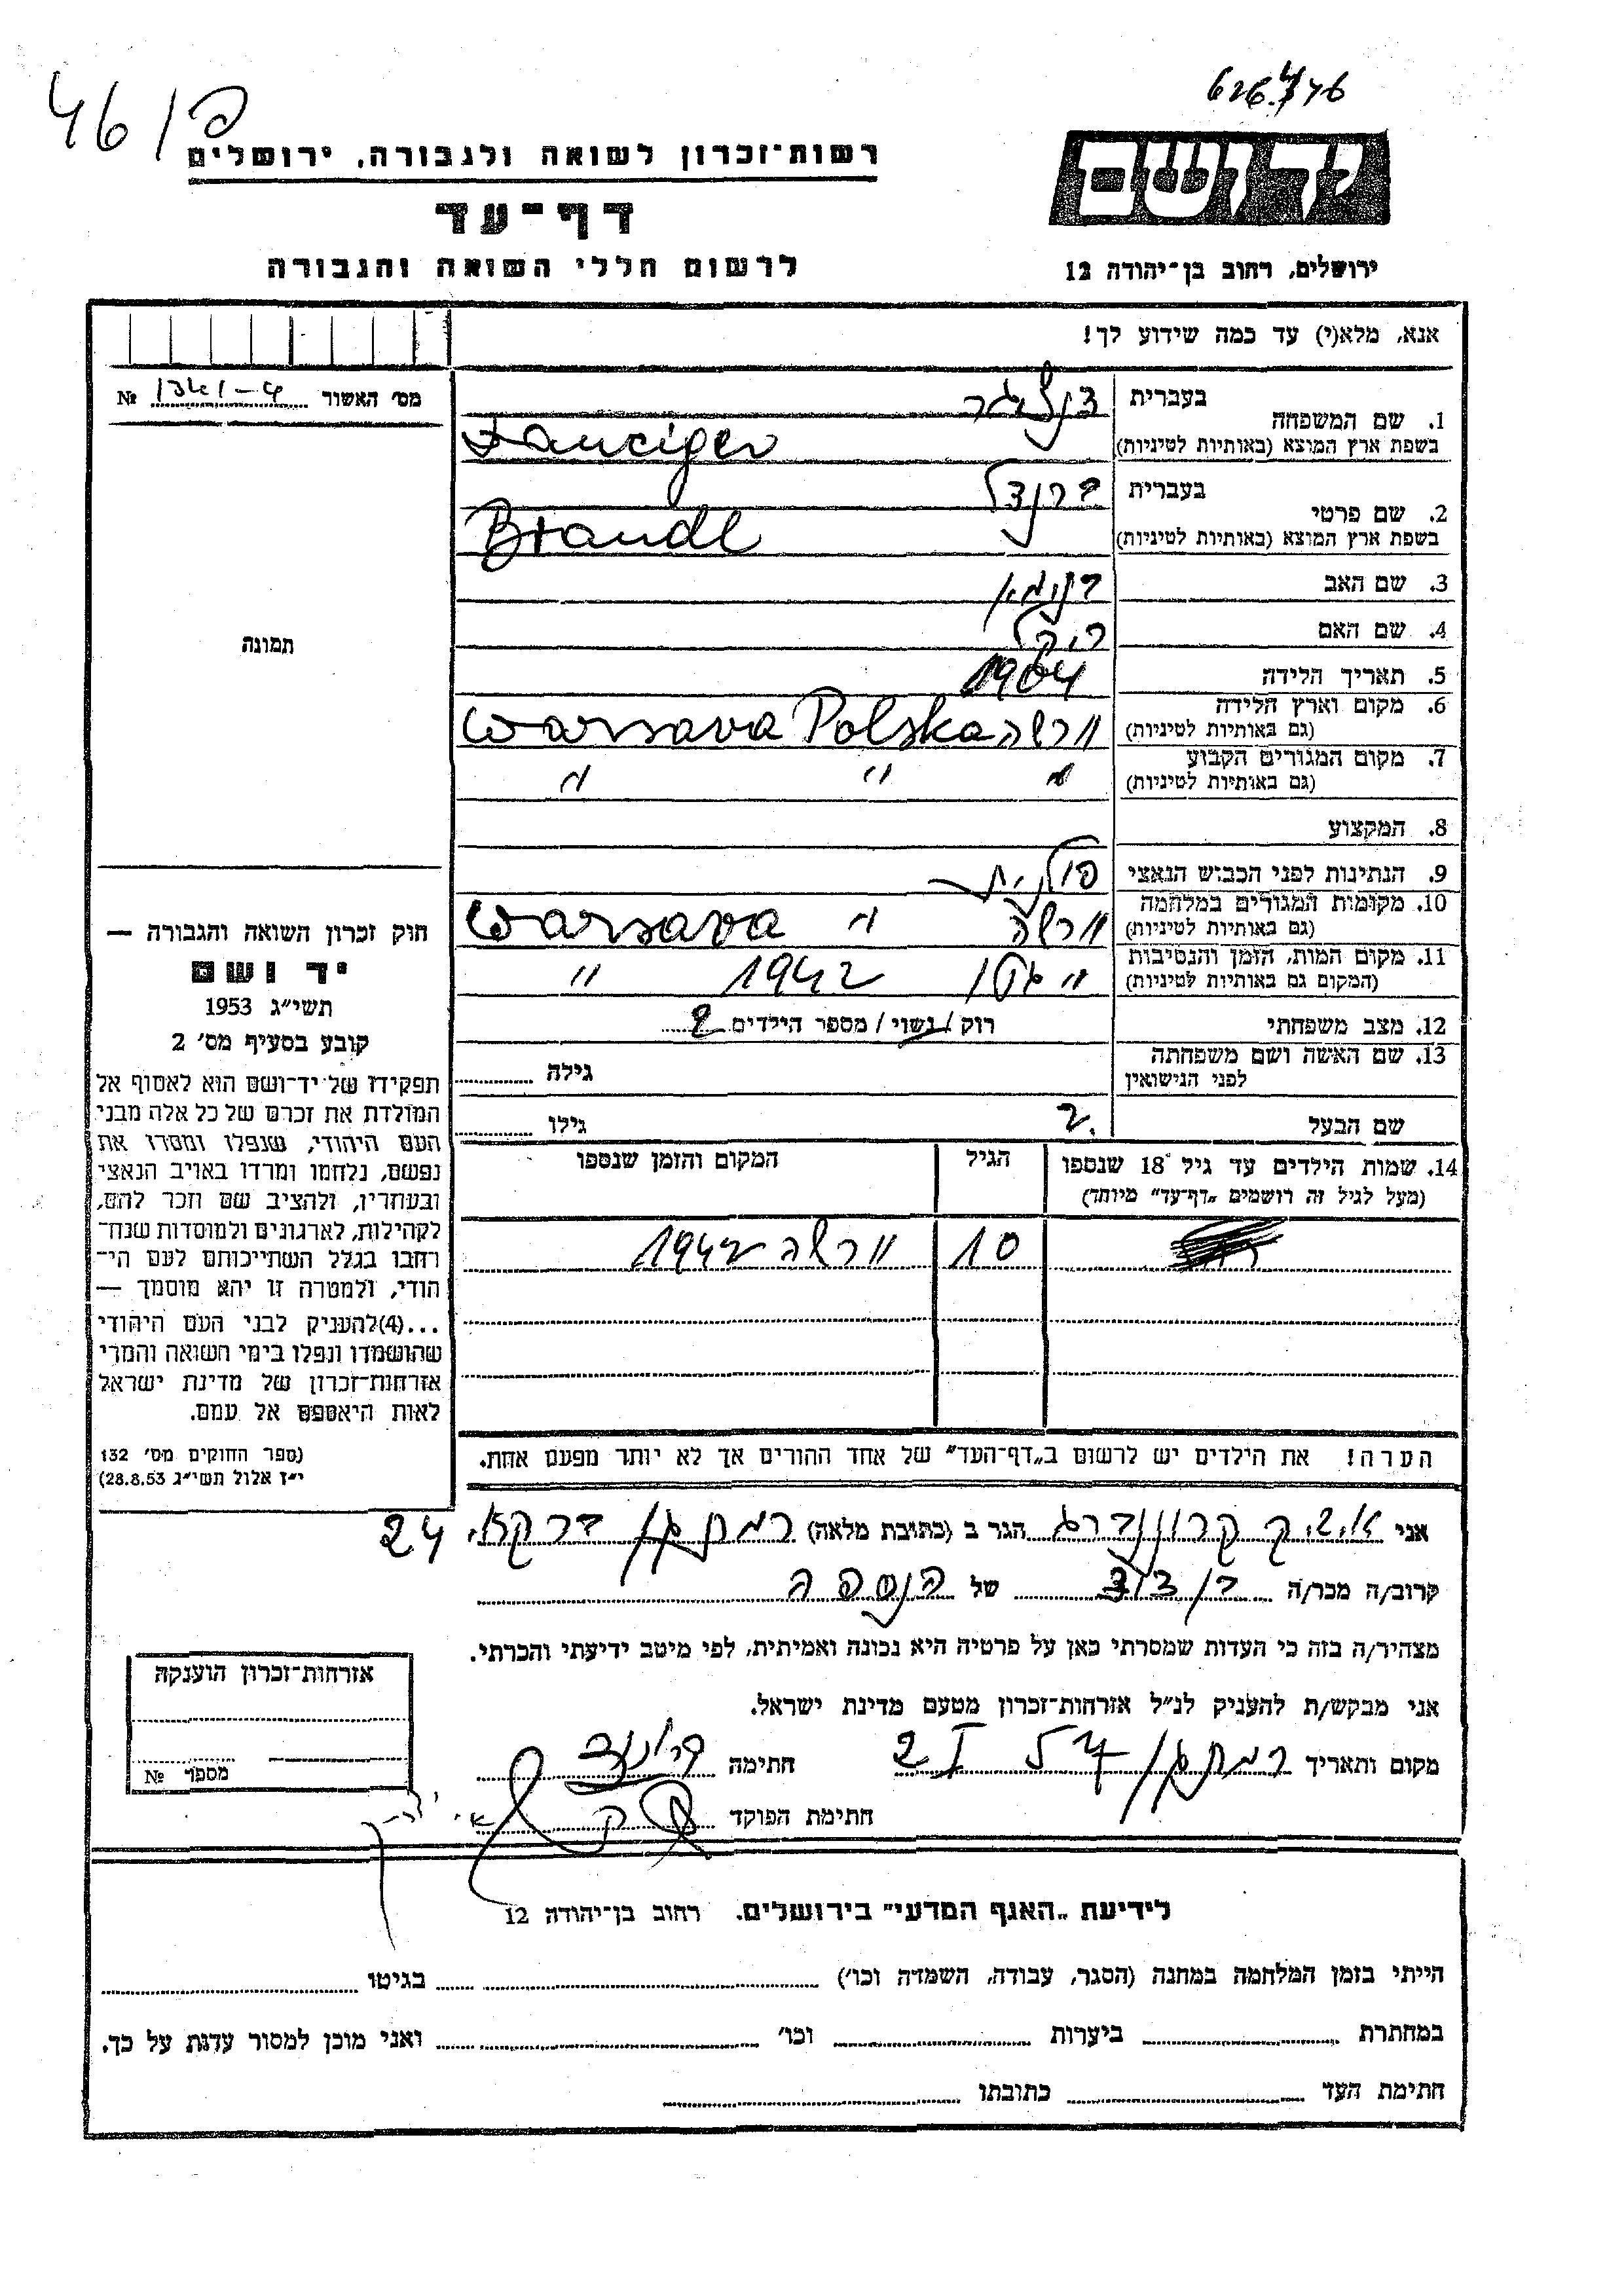 46 / פ
626.476
יד ושם
רשות־זכרון לשואה ולגבורה, ירושלים
דף־עד
לרשום חללי השואה והגבורה
ירושלים, רחוב בן־יהודה 12
אנא, מלא(י) עד כמה שידוע לך!
מס׳ האשור № 1341-4
1. שם המשפחה בעברית דנציגר
בשפת ארץ המוצא (באותיות לטיניות) Danciger
2. שם פרטי בעברית ברנדל
בשפת ארץ המוצא (באותיות לטיניות) Brandl
3. שם האב
4. שם האם
5. תאריך הלידה 1904
6. מקום וארץ הלידה (גם באותיות לטיניות) וורשה Warsava Polska
7. מקום המגורים הקבוע (גם באותיות לטיניות) " " "
8. המקצוע
9. הנתינות לפני הכבוש הנאצי פולנית
10. מקומות המגורים במלחמה (גם באותיות לטיניות) וורשה " Warsava
11. מקום המות, הזמן והנסיבות (המקום גם באותיות לטיניות) " 1942 "
12. מצב משפחתי רוק / נשוי / מספר הילדים 2
13. שם האשה ושם משפחתה לפני הנישואין גילה
שם הבעל גילו
14. שמות הילדים עד גיל 18 שנספו הגיל המקום והזמן שנספו
(מעל לגיל זה רושמים „דף־עד" מיוחד)
10 וורשה 1942
הערה! את הילדים יש לרשום ב„דף־העד" של אחד ההורים אך לא יותר מפעם אחת.
תמונה
חוק זכרון השואה והגבורה —
יד ושם
תשי״ג 1953
קובע בסעיף מס׳ 2
תפקידו של יד־ושם הוא לאסוף אל
המולדת את זכרם של כל אלה מבני
העם היהודי, שנפלו ומסרו את
נפשם, נלחמו ומרדו באויב הנאצי
ובעוזריו, ולהציב שם וזכר להם,
לקהילות, לארגונים ולמוסדות שנח־
רבו בגלל השתייכותם לעם הי־
הודי, ולמטרה זו יהא מוסמך —
...(4) להעניק לבני העם היהודי
שהושמדו ונפלו בימי השואה והמרי
אזרחות־זכרון של מדינת ישראל
לאות היאספם אל עמם.
(ספר החוקים מס׳ 132
י״ז אלול תשי״ג 28.8.53)
אני הגר ב (כתובת מלאה) רמת גן 24
קרוב/ה מכר/ה בן דוד של הנספה
מצהיר/ה בזה כי העדות שמסרתי כאן על פרטיה היא נכונה ואמיתית, לפי מיטב ידיעתי והכרתי.
אני מבקש/ת להעניק לנ״ל אזרחות־זכרון מטעם מדינת ישראל.
מקום ותאריך רמת גן חתימה
חתימת הפוקד
אזרחות־זכרון הוענקה
מספר №
לידיעת „האגף המדעי" בירושלים. רחוב בן־יהודה 12
הייתי בזמן המלחמה במחנה (הסגר, עבודה, השמדה וכו׳) בגיטו
במחתרת ביערות וכו׳ ואני מוכן למסור עדות על כך.
חתימת העד כתובתו